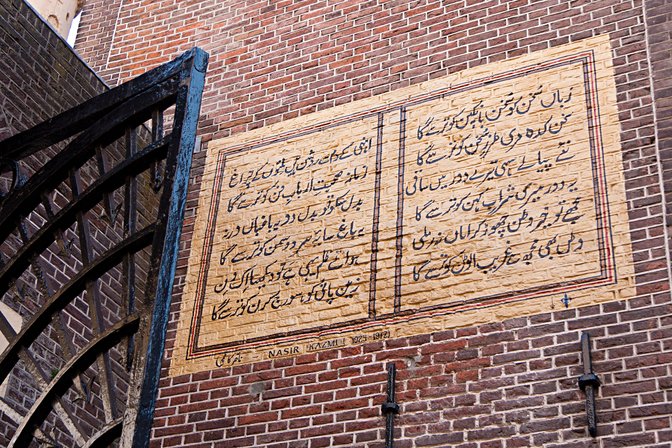 زباں سخن کو سخن بانکپن کو ترسے گا
سخن کدہ مری طرزِ سخن کو ترسے گا
نئے پیالے سہی تیرے دور میں ساقی
یہ دور میری شرابِ کہن کو ترسے گا
مجھے تو خیر وطن چھوڑ کر اماں نہ ملی
وطن بھی مجھ سے غریب الوطن کو ترسے گا
انہی کے دم سے روشن ہیں ملتوں کے چراغ
زمانہ صحبتِ اربابِ فن کو ترسے گا
بدل سکو تو بدل دو یہ باغباں ورنہ
یہ باغ سایۂ سرو و سمن کو ترسے گا
ہوائے ظلم یہی ہے تو دیکھنا اک دن
زمین پانی کو سورج کرن کو ترسے گا
ناصر کاظمی – NASIR KAZMI (1925-1972)